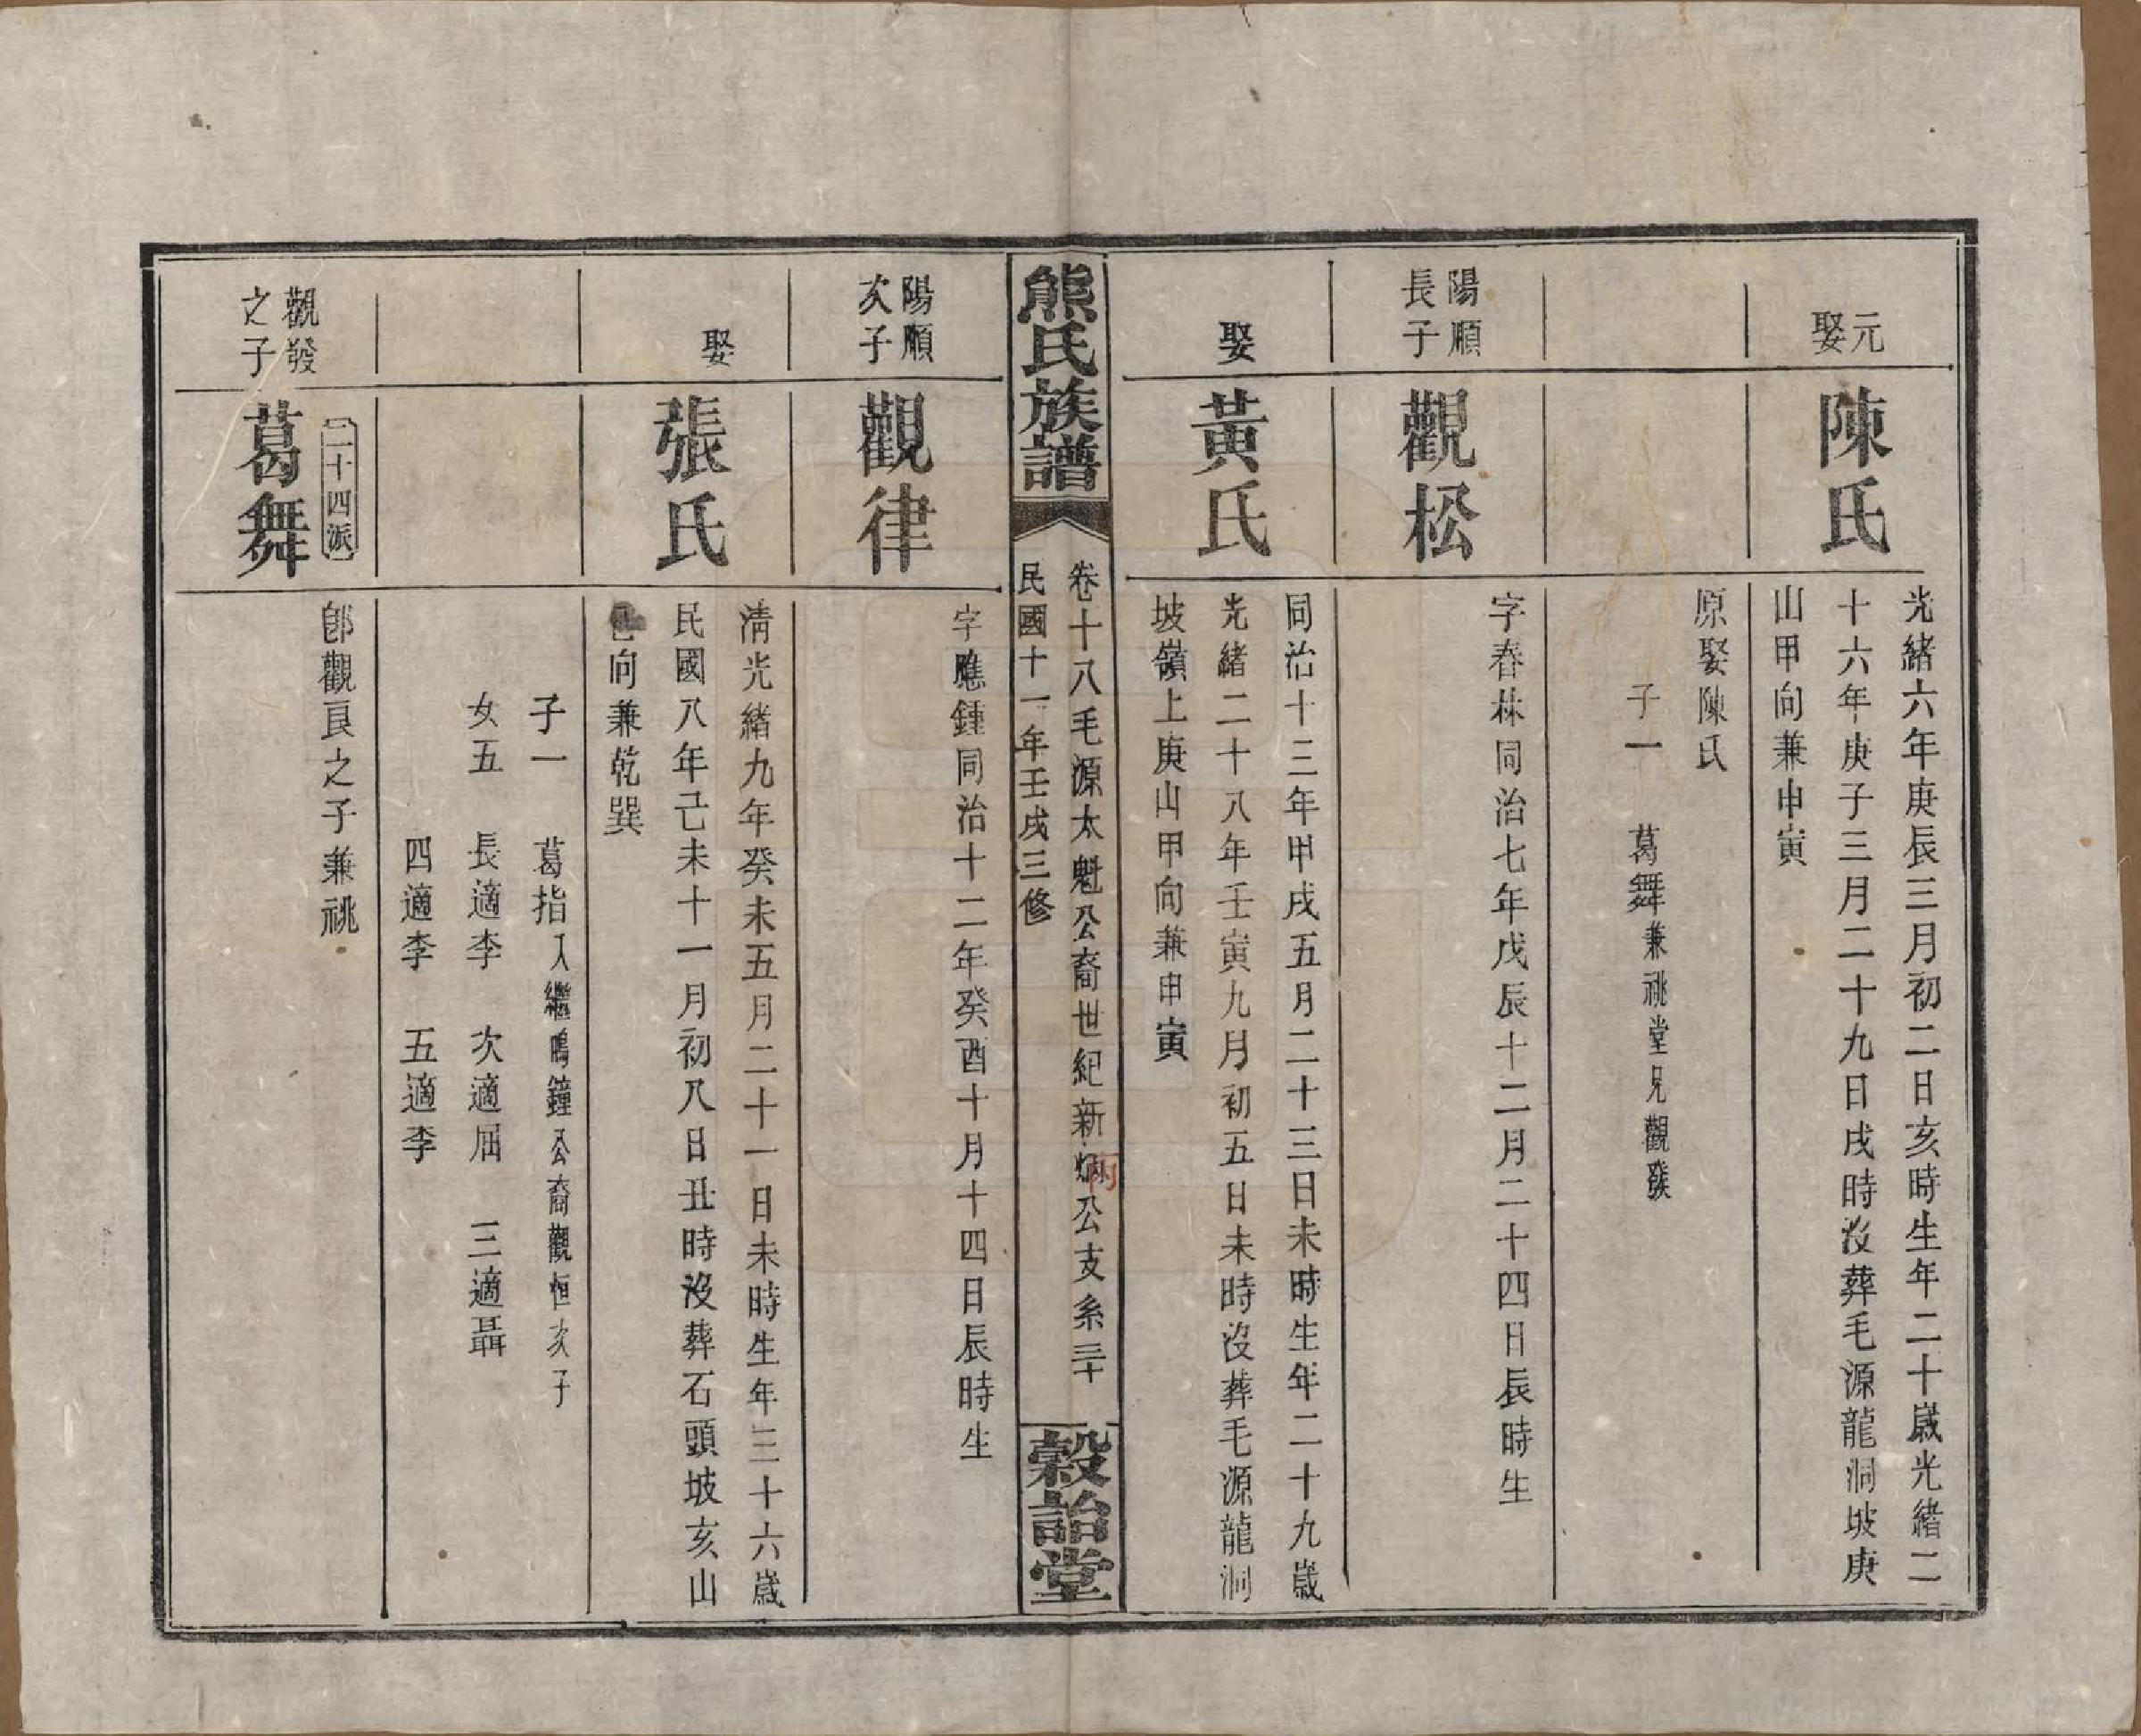 元娶
陳氏
光緒六年庚辰三月初二日亥時生年二十歲光緒二
十六年庚子三月二十九日戌時沒葬毛源龍洞坡庚
山甲向兼申寅
原娶陳氏
子一　葛舞兼祧堂兄觀發
陽順
長子
觀松
字春林同治七年戊辰十二月二十四日辰時生
娶
黃氏
同治十三年甲戌五月二十三日未時生年二十九歲
光緒二十八年壬寅九月初五日未時沒葬毛源龍洞
坡嶺上庚山甲向兼申寅
熊氏族譜
卷十八毛源太魁公裔世紀新炳公支系三十
丙
民國十一年壬戌三修
穀詒堂
陽順
次子
觀律
字應鍾同治十二年癸酉十月十四日辰時生
娶
張氏
清光緒九年癸未五月二十一日未時生年三十六歲
民國八年己未十一月初八日丑時沒葬石頭坡亥山
向兼乾巽
子一　葛指入繼鳴鐘公裔觀恒次子
女五　長適李　次適屈　三適聶
四適李　五適李
二十四派
觀發
之子
葛舞
郎觀頁之子兼祧